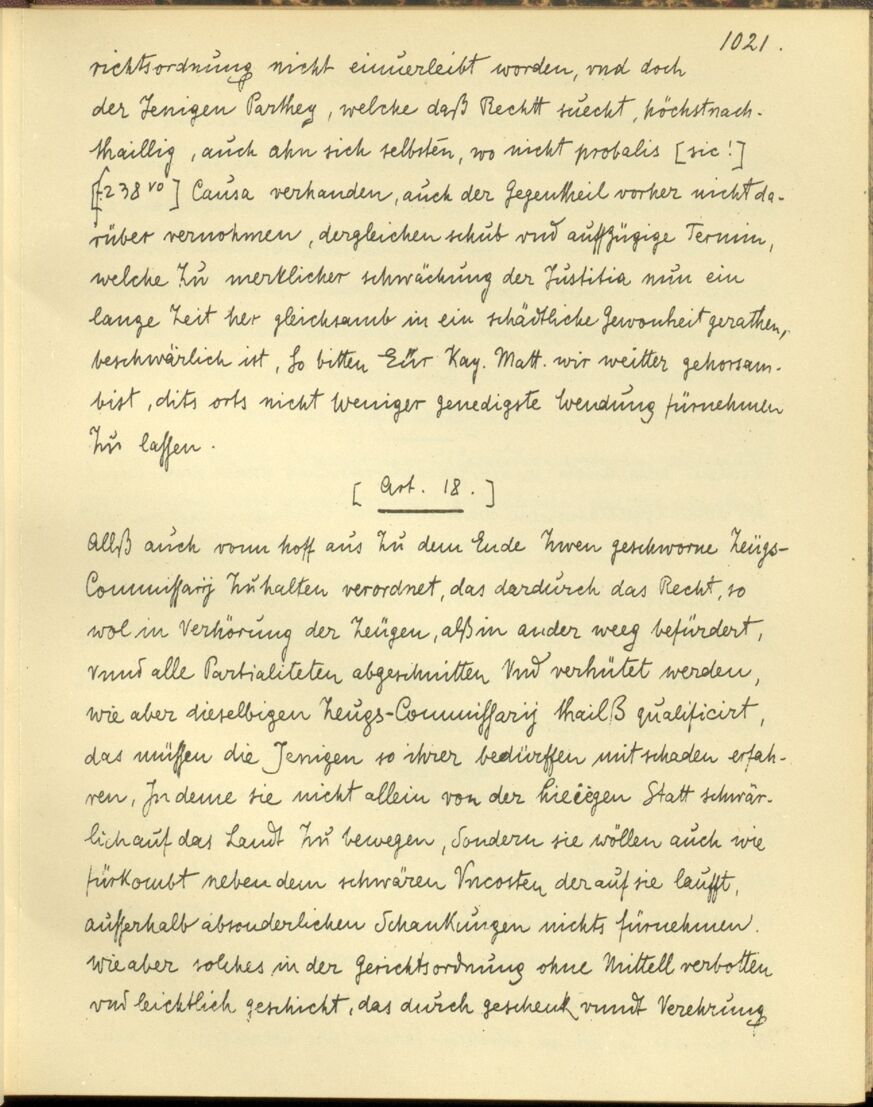 1021.
richtsordnung nicht einuerleibt worden, vnd doch
der Jenigen Parthey, welche daß Rechtt suecht, höchstnach-
thaillig, auch ahn sich selbsten, wo nicht probalis [sic!]
[f. 238 vo] Causa verhanden, auch der Gegentheil vorher nicht da-
rüber vernohmen, dergleichen schub vnd auffzügige Termin,
welche Zu merklicher schwächung der Justitia nun ein
lange Zeit her gleichsamb in ein schädtliche Gewonheit gerathen,
beschwärlich ist, So bitten Eür Kay. Matt. wir weitter gehorsam-
bist, dits orts nicht weniger genedigste Wendung fürnehmen
Zu lassen.
[Art. 18.]
Allß auch vonn hoff aus Zu dem Ende Zwen geschworne Zeügs-
Commissarij Zuhalten verordnet, das dardurch das Recht, so
wol in Verhörung der Zeügen, alß in ander weeg befürdert,
vnnd alle Partialiteten abgeschnitten Vnd verhütet werden,
wie aber dieselbigen Zeugs-Commissarij thailß qualificirt,
das müssen die Jenigen so ihrer bedürffen mit schaden erfah-
ren, In deme sie nicht allein von der hieeigen Statt schwär-
lich auf das Landt Zu bewegen, Sondern sie wöllen auch wie
fürkombt neben dem schwären Vncosten der auf sie laufft,
ausserhalb absonderlichen Schankungen nichts fürnehmen.
Wie aber solches in der Gerichtsordnung ohne Mittell verbotten
vnd leichtlich geschicht, das durch geschenk vnndt Verehrung